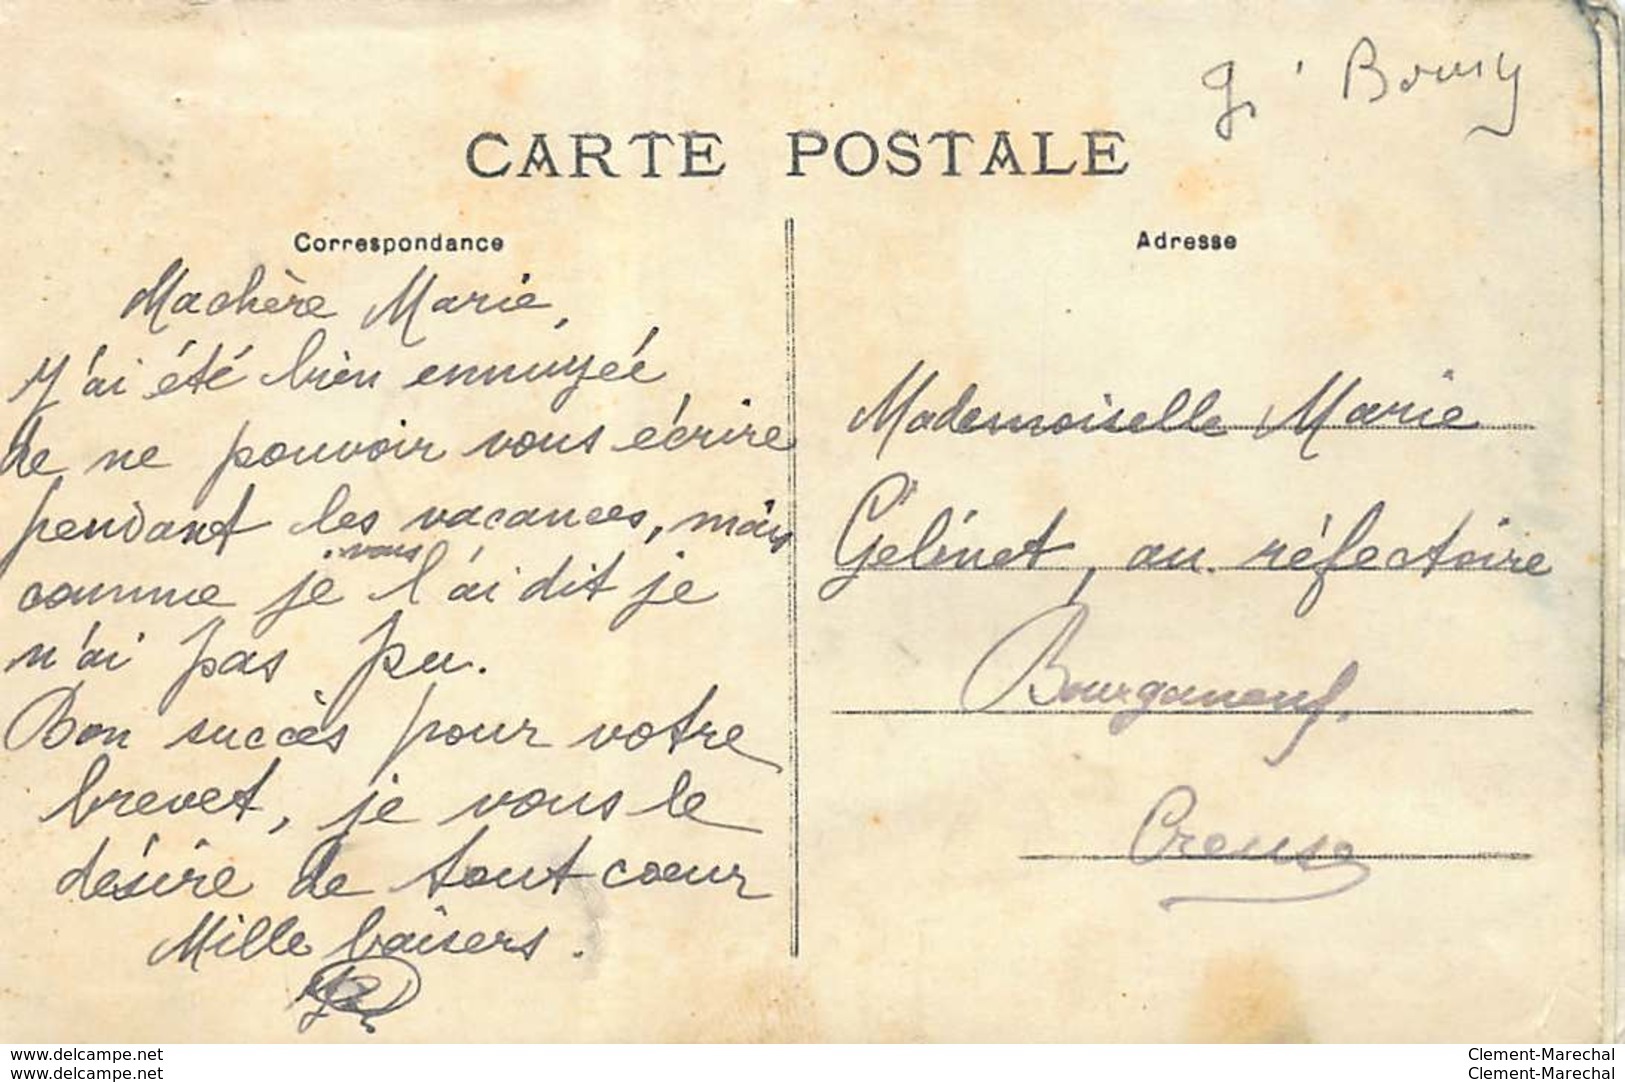 CARTE POSTALE
Correspondance
Ma chère Marie,
J'ai été bien ennuyée
de ne pouvoir vous écrire
pendant les vacances, mais
comme je vous l'ai dit je
n'ai pas pu.
Bon succès pour votre
brevet, je vous le
désire de tout cœur
Mille baisers.
Adresse
Mademoiselle Marie
Gélinet, au réfectoire
Bourganeuf.
Creuse
www.delcampe.net
www.delcampe.net
Clement-Marechal
Clement-Marechal